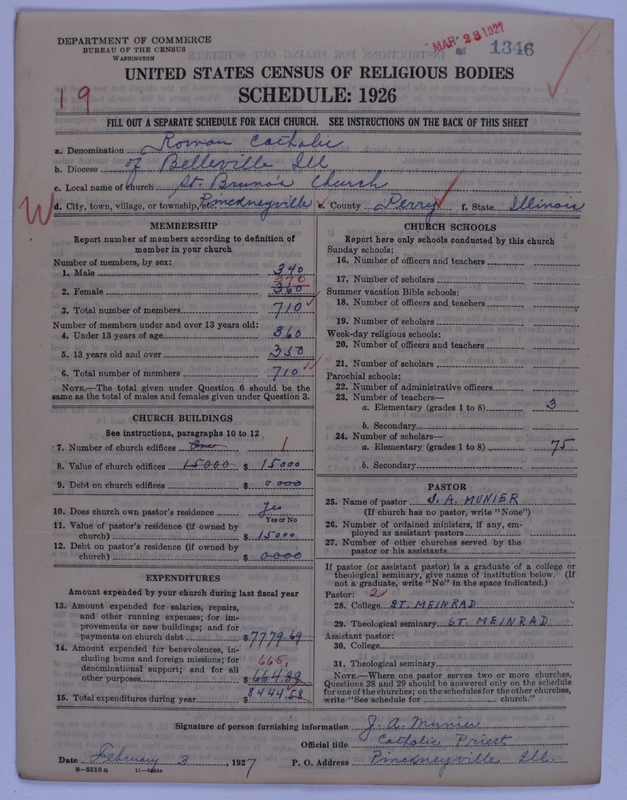 DEPARTMENT OF COMMERCE
BUREAU OF THE CENSUS
WASHINGTON
MAR 28 1927
1346
19
UNITED STATES CENSUS OF RELIGIOUS BODIES
SCHEDULE: 1926
FILL OUT A SEPARATE SCHEDULE FOR EACH CHURCH. SEE INSTRUCTIONS ON THE BACK OF THIS SHEET
a. Denomination Roman Catholic
b. Diocese of Belleville Ill
c. Local name of church St. Bruno's Church
W
d. City, town, village, or township, etc. Pinckneyville e. County Perry f. State Illinois
MEMBERSHIP
Report number of members according to definition of
member in your church
Number of members, by sex:
1. Male 340
370
2. Female 360
3. Total number of members 710
Number of members under and over 13 years old:
4. Under 13 years of age 360
5. 13 years old and over 350
6. Total number of members 710
NOTE.—The total given under Question 6 should be the
same as the total of males and females given under Question 3.
CHURCH BUILDINGS
See instructions, paragraphs 10 to 12
7. Number of church edifices One 1
8. Value of church edifices 15000 $ 15000
9. Debt on church edifices $ 0000
10. Does church own pastor's residence Yes
Yes or No
11. Value of pastor's residence (if owned by
church) $ 15000
12. Debt on pastor's residence (if owned by
church) $ 0000
EXPENDITURES
Amount expended by your church during last fiscal year
13. Amount expended for salaries, repairs,
and other running expenses; for im-
provements or new buildings; and for
payments on church debt $ 7779.69
14. Amount expended for benevolences, in-
cluding home and foreign missions; for
denominational support; and for all
665
other purposes $ 664.89
15. Total expenditures during year $ 8444.58
CHURCH SCHOOLS
Report here only schools conducted by this church
Sunday schools:
16. Number of officers and teachers
17. Number of scholars
Summer vacation Bible schools:
18. Number of officers and teachers
19. Number of scholars
Week-day religious schools:
20. Number of officers and teachers
21. Number of scholars
Parochial schools:
22. Number of administrative officers
23. Number of teachers—
a. Elementary (grades 1 to 8) 3
b. Secondary
24. Number of scholars—
a. Elementary (grades 1 to 8) 75
b. Secondary
PASTOR
25. Name of pastor J. A. MUNIER
(If church has no pastor, write "None")
26. Number of ordained ministers, if any, em-
ployed as assistant pastors
27. Number of other churches served by the
pastor or his assistants
If pastor (or assistant pastor) is a graduate of a college or
theological seminary, give name of institution below. (If
not a graduate, write "No" in the space indicated.)
Pastor: 2
28. College ST. MEINRAD
29. Theological seminary ST. MEINRAD
Assistant pastor:
30. College
31. Theological seminary
NOTE.—Where one pastor serves two or more churches,
Questions 28 and 29 should be answered only on the schedule
for one of the churches; on the schedules for the other churches,
write "See schedule for church."
Signature of person furnishing information J. A. Munier
Official title Catholic Priest
Date February 3, 1927 P. O. Address Pinckneyville Ill.
8—5518 a